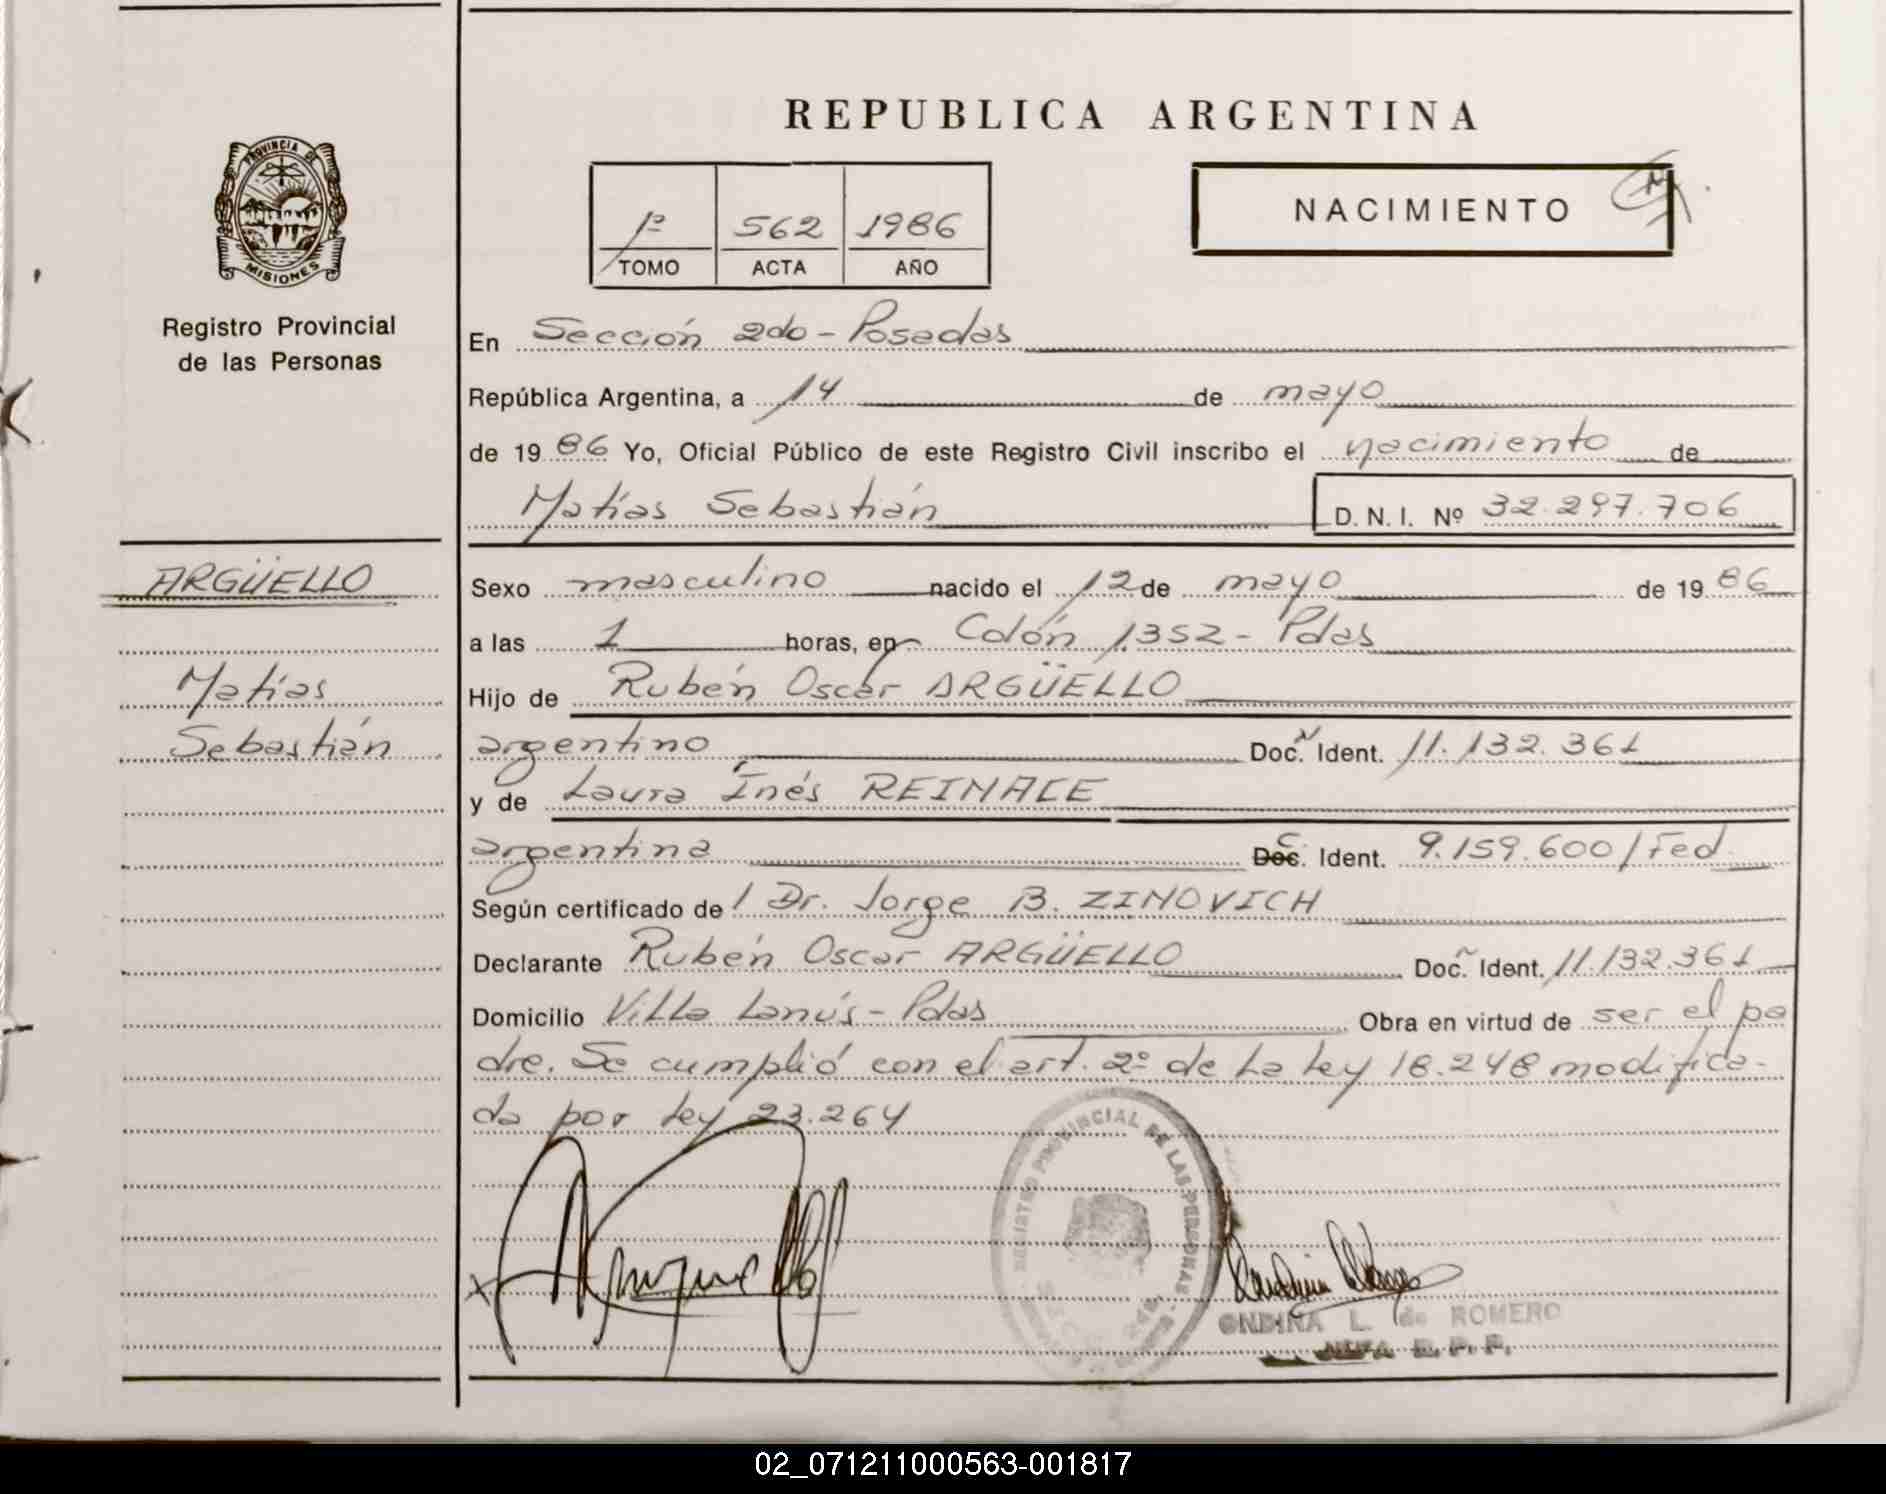 REPUBLICA ARGENTINA
PROVINCIA DE
MISIONES
Registro Provincial
de las Personas
1º 562 1986
TOMO ACTA AÑO
NACIMIENTO
En Sección 2do - Posadas
República Argentina, a 14 de mayo
de 1986 Yo, Oficial Público de este Registro Civil inscribo el nacimiento de
Matías Sebastián D. N. I. Nº 32.297.706
ARGÜELLO
Matías
Sebastián
Sexo masculino nacido el 12 de mayo de 1986
a las 1 horas, en Colón 1352 - Pdas
Hijo de Rubén Oscar ARGÜELLO
argentino Doc. Ident. 11.132.361
y de Laura Inés REINACE
argentina Doc. Ident. 9.159.600/Fed
Según certificado de Dr. Jorge B. ZINOVICH
Declarante Rubén Oscar ARGÜELLO Doc. Ident. 11.132.361
Domicilio Villa Lanús - Pdas Obra en virtud de ser el pa
dre. Se cumplió con el art. 2º de la ley 18.248 modifica-
da por ley 23.264
REGISTRO PROVINCIAL DE LAS PERSONAS
ONDINA L. de ROMERO
R. P. P.
02_071211000563-001817